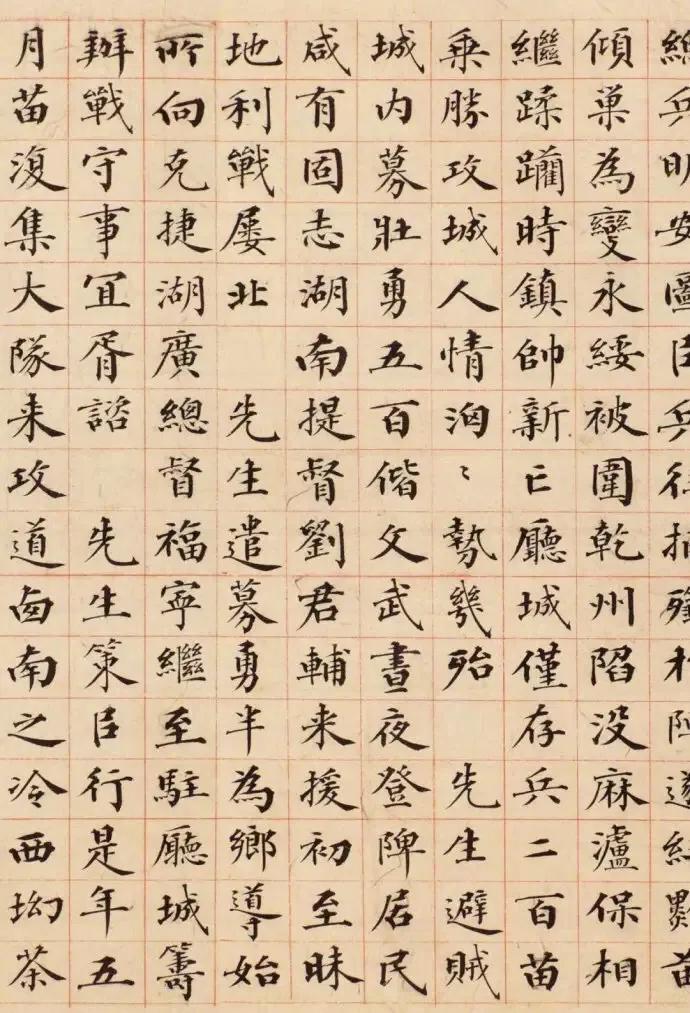 總兵明安圖㠯兵往捕於陣遂苗
傾巢為變永綏被圍乾州陷没麻瀘保相
繼蹂躪時鎮帥新亡廳城僅存兵二百苗
乗勝攻城人情洶〻勢幾殆 先生避賊
城内募壯勇五百偕文武晝夜登陴居民
咸有固志湖南提督劉君輔来援初至昧
地利戰屢北 先生遣募勇半為鄉導始
所向克捷湖廣總督福寧繼至駐廳城籌
辦戰守事宜胥諮 先生策㠯行是年五
月苗復集大隊来攻道南之冷西坳茶